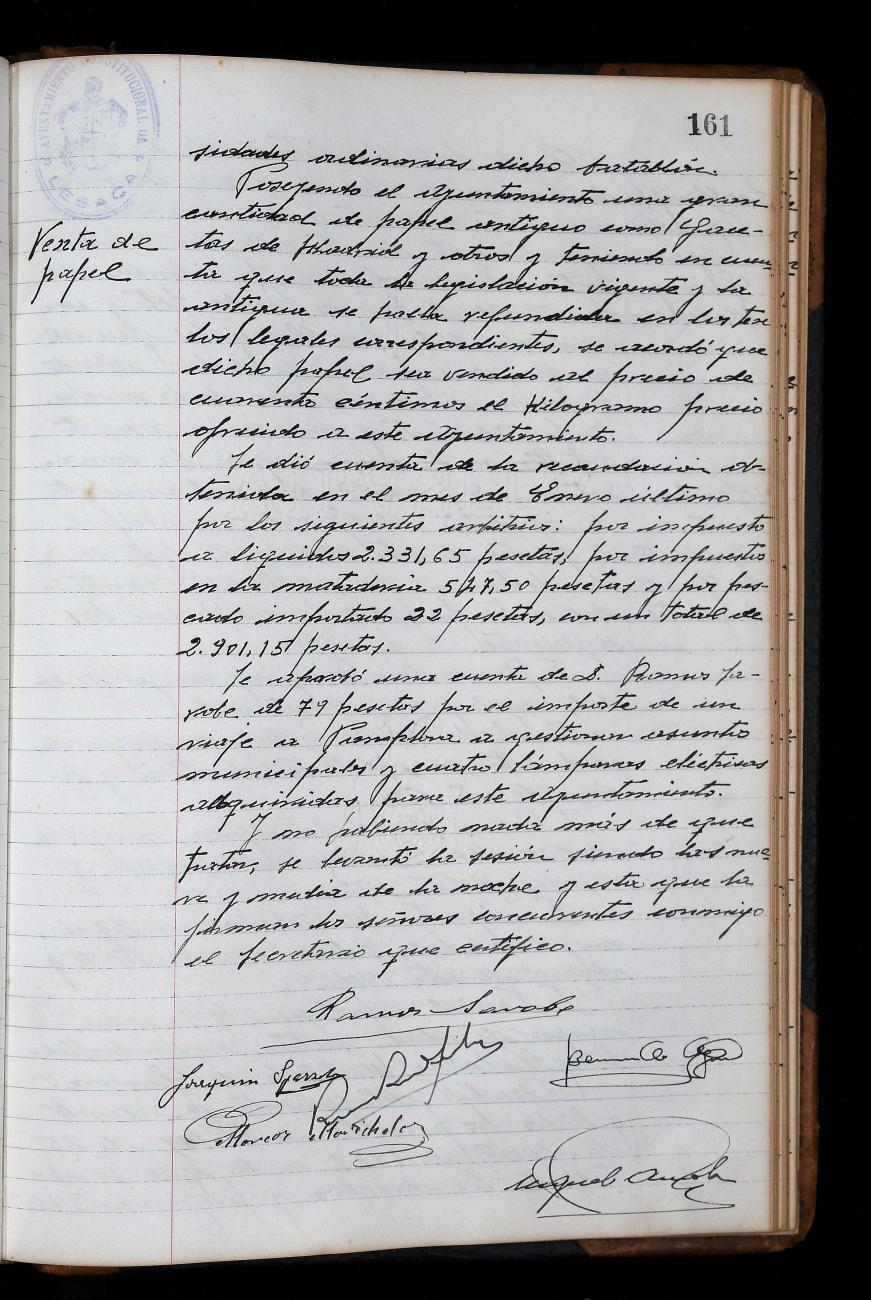 161
AYUNTAMIENTO CONSTITUCIONAL DE
LESACA
Venta de
papel
sidades ordinarias dicho batallón.
Poseyendo el Ayuntamiento una gran
cantidad de papel antiguo como Gace-
tas de Madrid y otros y teniendo en cuen-
ta que toda la legislación vigente y la
antigua se halla refundida en los tex
tos legales correspondientes, se acordó que
dicho papel sea vendido al precio de
cuarenta céntimos el Kilogramo precio
ofrecido a este Ayuntamiento.
Se dió cuenta de la recaudación ob-
tenida en el mes de Enero último
por los siguientes arbitrios: por impuesto
a liquidos 2.331,65 pesetas, por impuesto
en la matadería 547,50 pesetas y por pes-
cado importado 22 pesetas, con un total de
2.901,15 pesetas.
Se aprobó una cuenta de D. Ramos Sa-
robe de 79 pesetas por el importe de un
viaje a Pamplona a gestionar asunto
municipales y cuatro lámparas eléctricas
adquiridas para este Ayuntamiento.
Y no habiendo nada más de que
tratar, se levantó la sesión siendo las nue-
ve y media de la noche y esta que la
firman los señores concurrentes conmigo
el Secretario que certifico.
Ramos Sarobe
Joaquin
Marcos Marichalar
Miguel